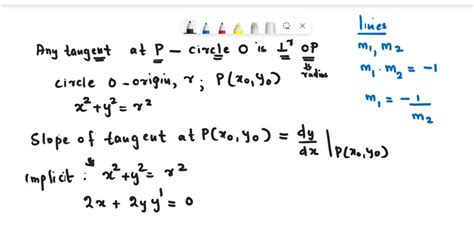 Any tangent at P – circle O is ⊥r OP
radius
circle O-origin, r; P(x₀, y₀)
x² + y² = r²
Slope of tangent at P(x₀, y₀) = dy/dx | P(x₀, y₀)
Implicit : x² + y² = r²
2x + 2y y' = 0
lines
m₁, m₂
m₁ · m₂ = -1
m₁ = -1/m₂